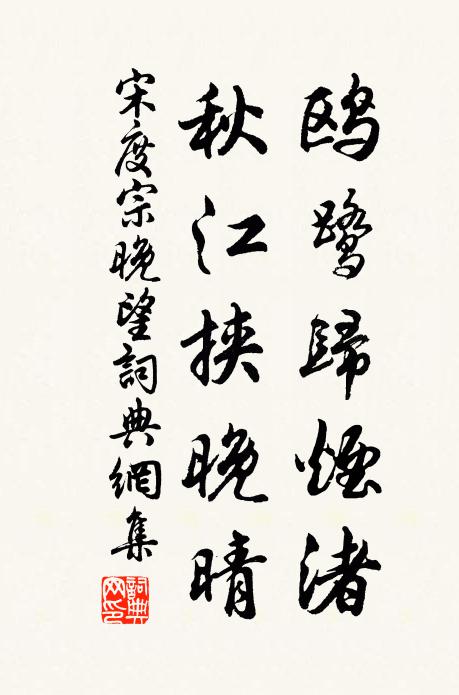 鸥鹭歸煙渚
秋江挾晚晴
宋度宗晚望詞典網集
詞典網印